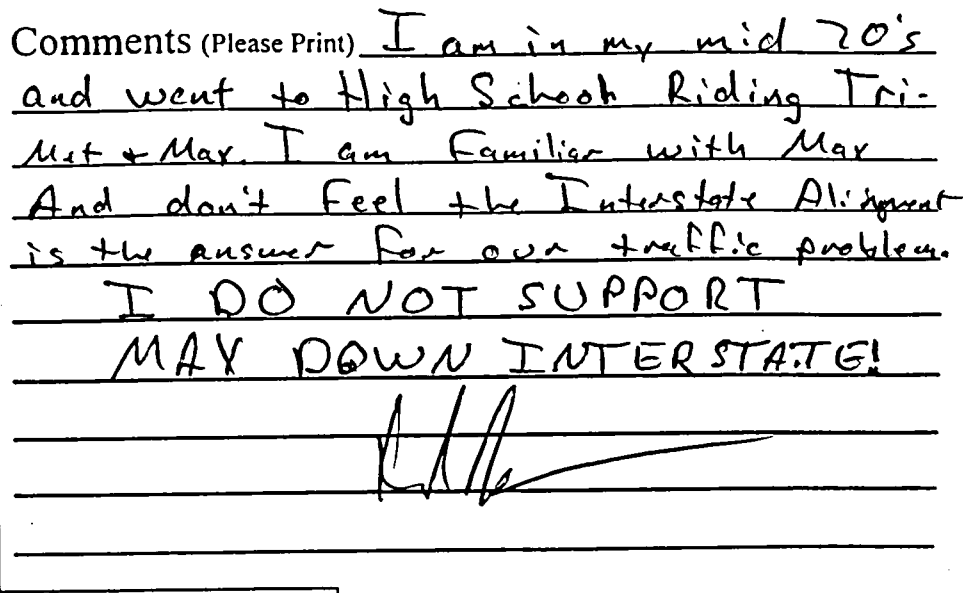 Comments (Please Print) I am in my mid 20's
and went to High School Riding Tri-
Met + Max. I am Familiar with Max
And don't Feel the Interstate Alignment
is the answer for our traffic problem.
I DO NOT SUPPORT
MAX DOWN INTERSTATE!